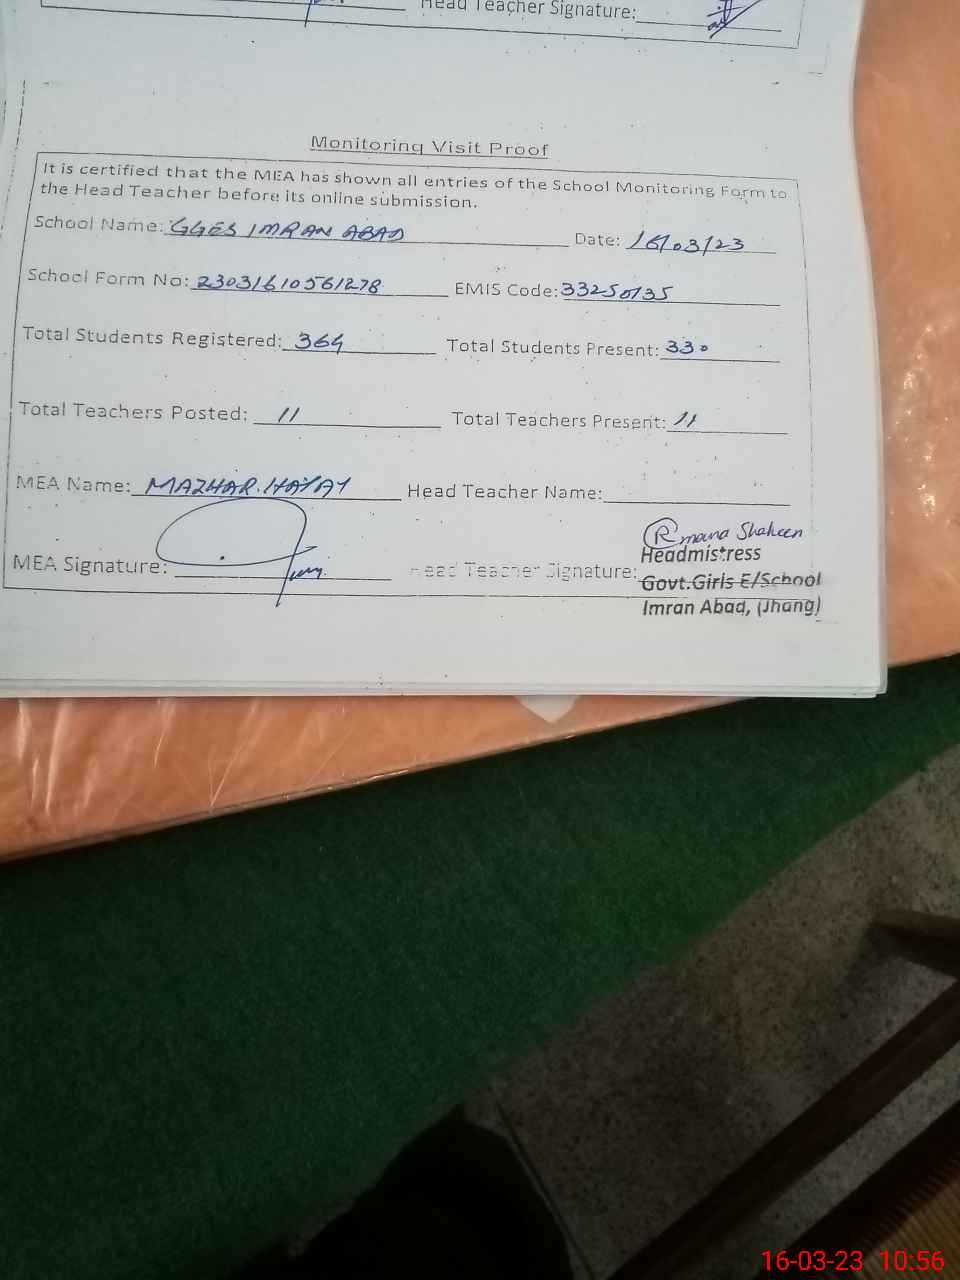 Head Teacher Signature:
Monitoring Visit Proof
It is certified that the MEA has shown all entries of the School Monitoring Form to
the Head Teacher before its online submission.
School Name: GGES IMRAN ABAD Date: 16/03/23
School Form No: 23031610561278 EMIS Code: 33250135
Total Students Registered: 364 Total Students Present: 330
Total Teachers Posted: 11 Total Teachers Present: 11
MEA Name: MAZHAR.HAYAT Head Teacher Name:
Shaheen
MEA Signature: Head Teacher Signature:
Headmistress
Govt.Girls E/School
Imran Abad, (Jhang)
16-03-23 10:56